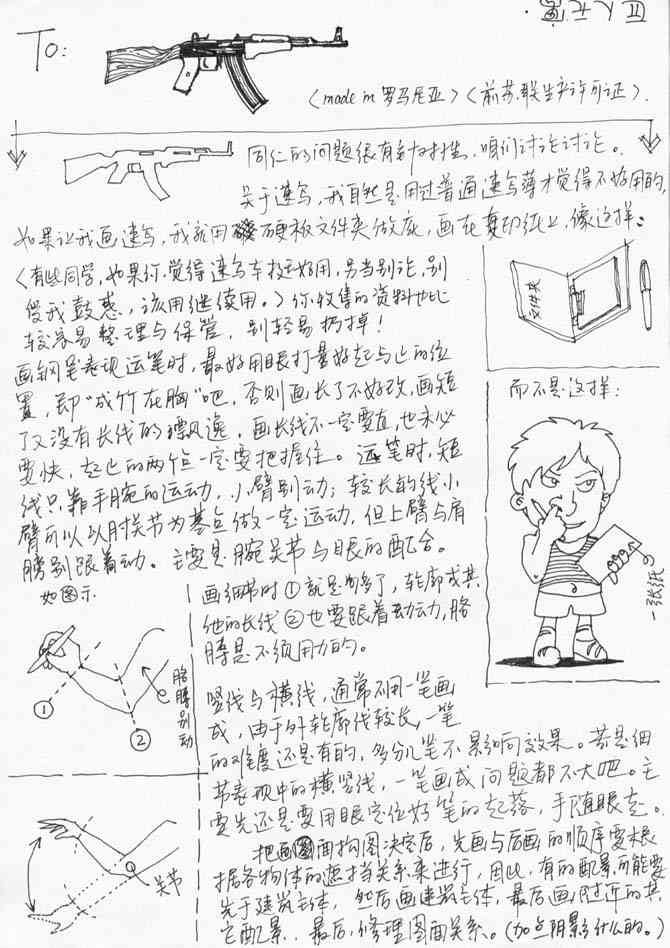 To:
〈made in 罗马尼亚〉〈前苏联生产许可证〉.
同仁的问题很有针对性, 咱们讨论讨论。
关于速写, 我自然是用过普通速写薄才觉得不好用的,
如果让我画速写, 我就用硬板文件夹做底, 画在复印纸上, 像这样:
〈有些同学, 如果你觉得速写本挺好用, 另当别论, 别
受我鼓惑, 该用继续用。〉你收集的资料也比
较容易整理与保管, 别轻易扔掉!
文件夹
画钢笔表现运笔时, 最好用眼打量好起与止的位
置, 即“成竹在胸”吧, 否则画长了不好改, 画短
了又没有长线的飘逸, 画长线不一定要直, 也未必
要快, 起止的两个点一定要把握住。运笔时, 短
线只靠手腕的运动, 小臂别动; 较长的线小
臂可以以肘关节为基点做一定运动, 但上臂与肩
膀别跟着动。主要是腕关节与眼的配合。
如图示
而不是这样:
一张纸
画细节时①就足够了, 轮廓或其
他的长线②也要跟着动动, 胳
膊是不须用力的。
胳膊别动
①
②
竖线与横线, 通常不用一笔画
成, 由于外轮廓线较长, 一笔
的难度还是有的, 多分几笔不影响效果。若是细
节表现中的横竖线, 一笔画成问题都不大吧。主
要先还是要用眼定位好笔的起落, 手随眼走。
关节
把画面构图决定后, 先画与后画的顺序要根
据各物体的遮挡关系来进行, 因此, 有的配景可能要
先于建筑主体, 然后画建筑主体, 最后画附近的其
它配景. 最后, 修理图面关系。(加点阴影什么的。)